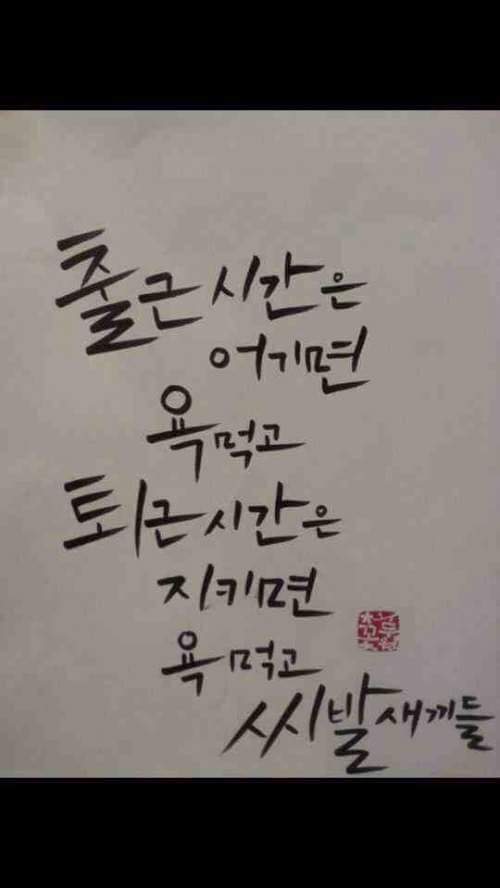 출근 시간은
어기면
욕먹고
퇴근 시간은
지키면
욕 먹고
씨발 새끼들